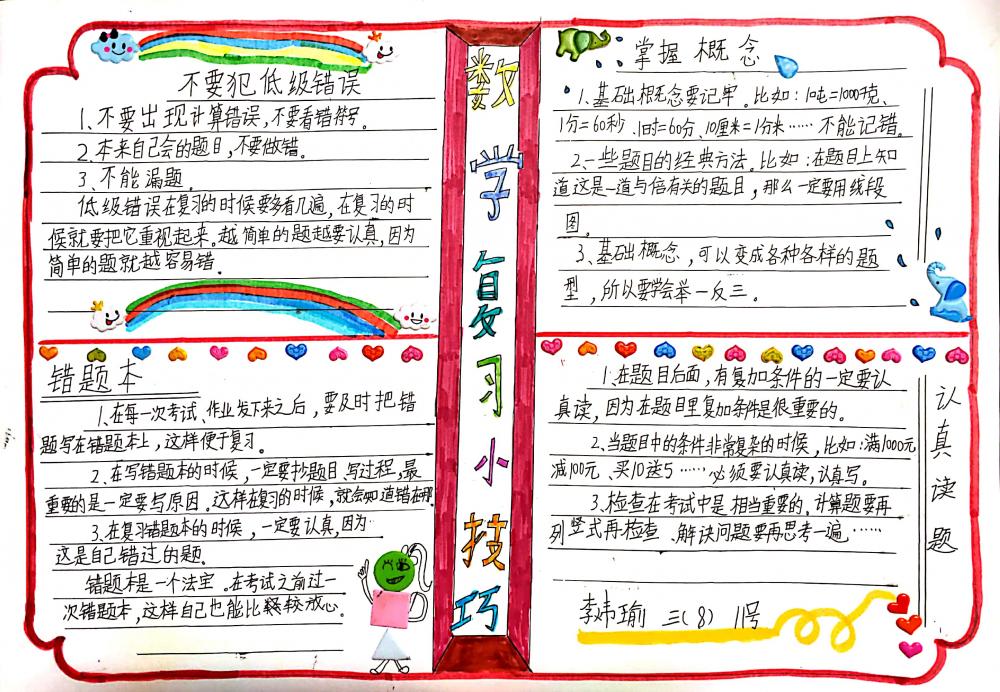 数学复习小技巧
不要犯低级错误
1、不要出现计算错误,不要看错符号。
2、本来自己会的题目,不要做错。
3、不能漏题。
低级错误在复习的时候要多看几遍,在复习的时
候就要把它重视起来。越简单的题越要认真,因为
简单的题就越容易错。
掌握概念
1、基础概念要记牢。比如:1吨=1000千克、
1分=60秒、1时=60分、10厘米=1分米……不能记错。
2、一些题目的经典方法。比如:在题目上知
道这是一道与倍有关的题目,那么一定要用线段
图。
3、基础概念,可以变成各种各样的题
型,所以要学会举一反三。
错题本
1、在每一次考试、作业发下来之后,要及时把错
题写在错题本上,这样便于复习。
2、在写错题本的时候,一定要抄题目、写过程,最
重要的是一定要写原因。这样在复习的时候,就会知道错在哪
3、在复习错题本的时候,一定要认真,因为
这是自己错过的题。
错题本是一个法宝。在考试之前过一
次错题本,这样自己也能比较放心。
认真读题
1、在题目后面,有复加条件的一定要认
真读,因为在题目里复加条件是很重要的。
2、当题目中的条件非常复杂的时候,比如:满1000元
减100元、买10送5……必须要认真读,认真写。
3、检查在考试中是相当重要的,计算题要再
列竖式再检查、解决问题要再思考一遍……
李炜瑜 三(8) 11号